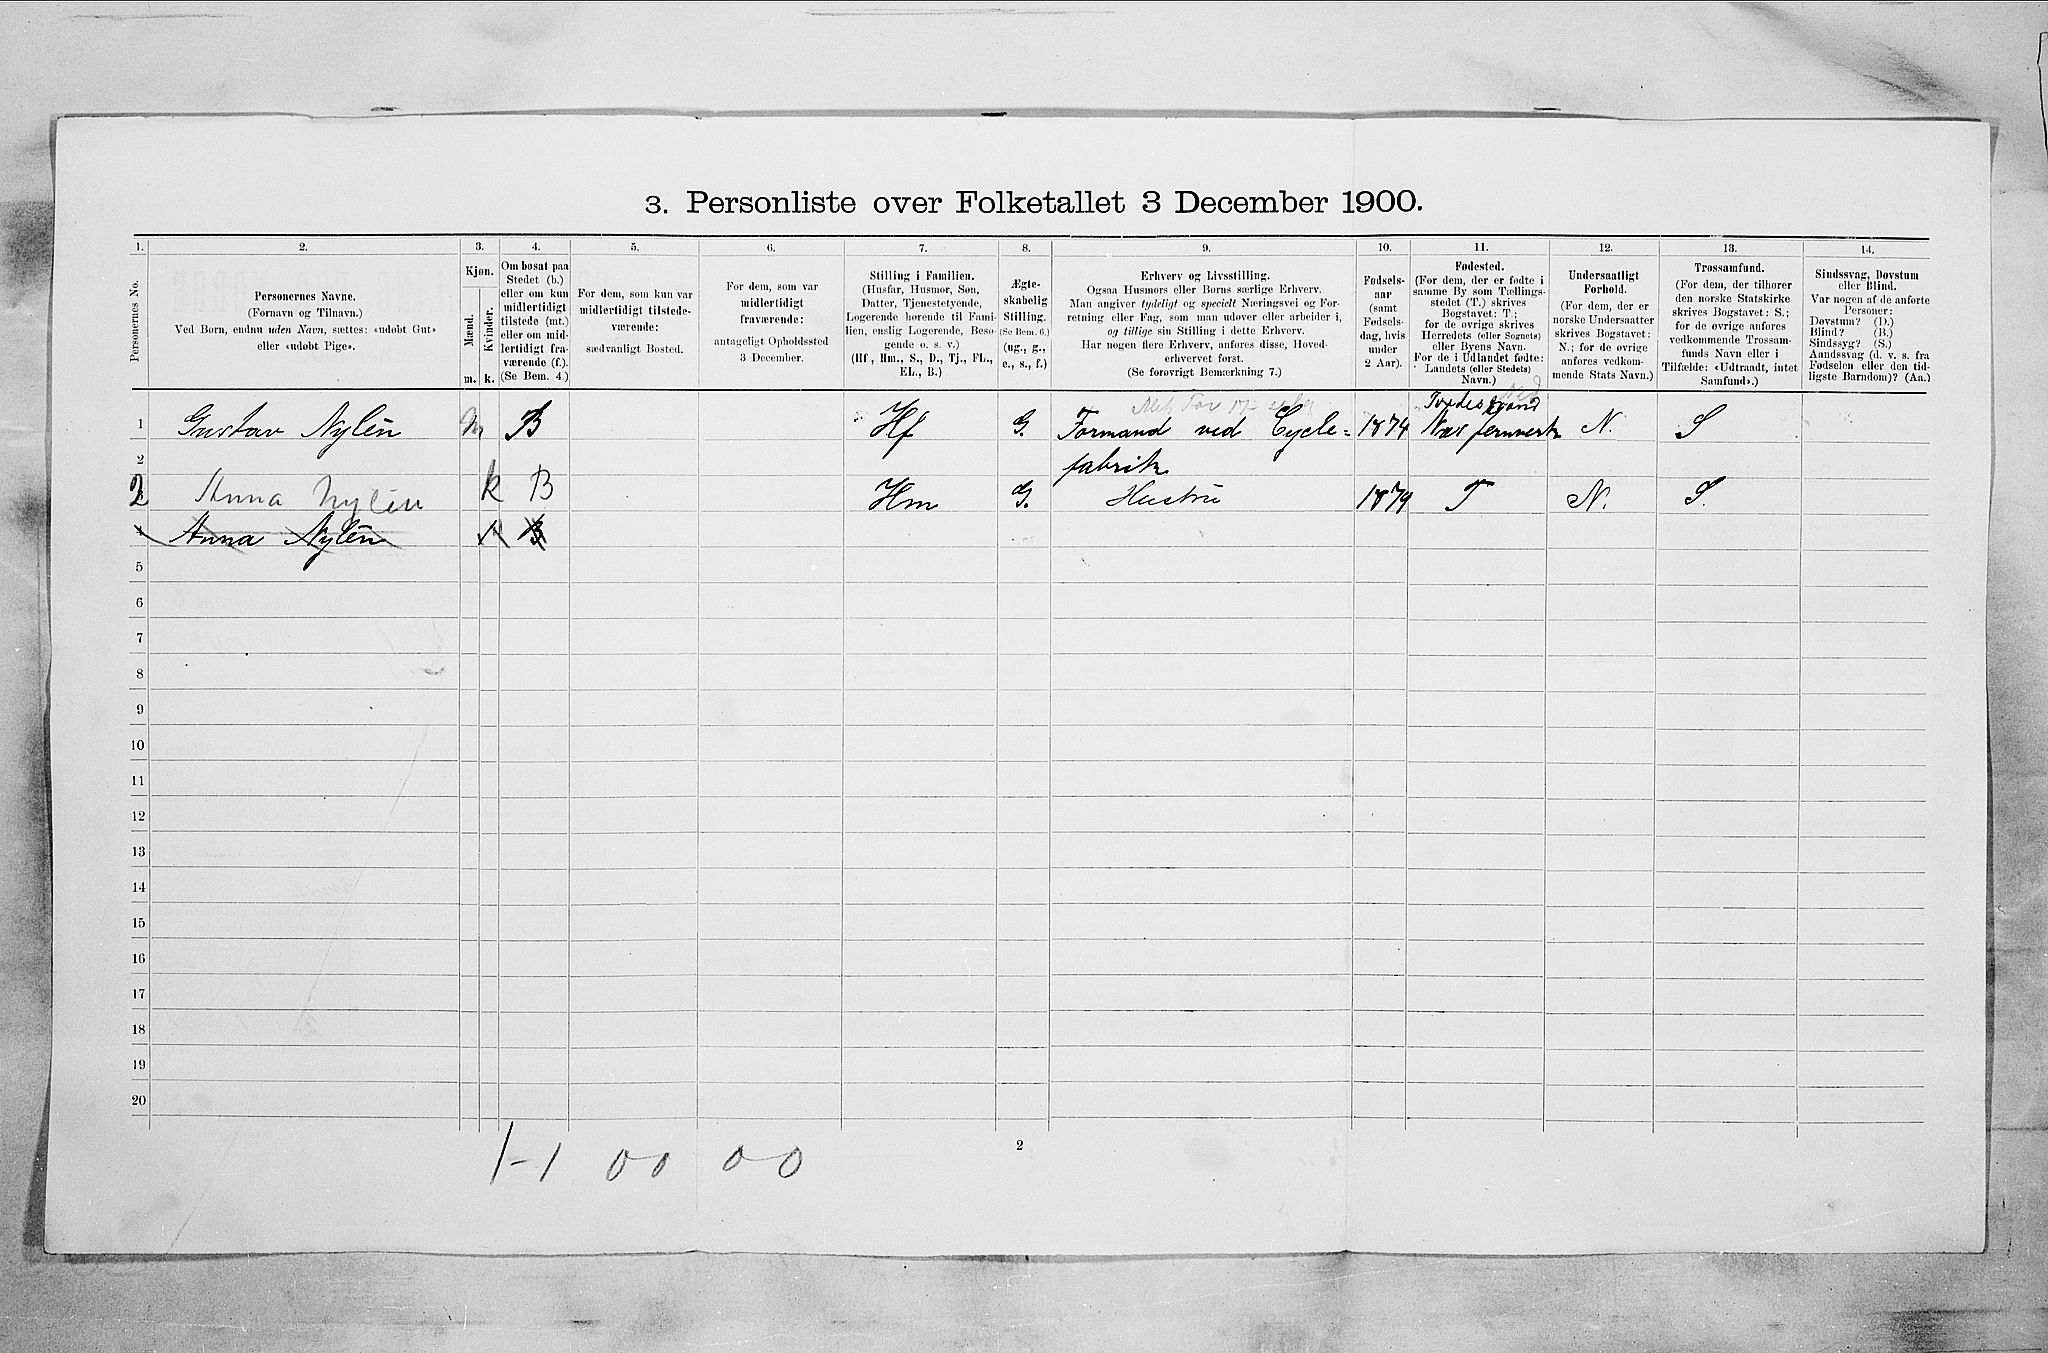 3. Personliste over Folketallet 3 December 1900.
1. 2. 3. 4. 5. 6. 7. 8. 9. 10. 11. 12. 13. 14.
Personernes No.
Personernes Navne.
(Fornavn og Tilnavn.)
Ved Børn, endnu uden Navn, sættes: «udøbt Gut»
eller «udøbt Pige».
Kjøn.
Mænd.
Kvinder.
m. k.
Om bosat paa
Stedet (b.)
eller om kun
midlertidigt
tilstede (mt.)
eller om mid-
lertidigt fra-
værende (f.).
(Se Bem. 4.)
For dem, som kun var
midlertidigt tilstede-
værende:
sædvanligt Bosted.
For dem, som var
midlertidigt
fraværende:
antageligt Opholdssted
3 December.
Stilling i Familien.
(Husfar, Husmor, Søn,
Datter, Tjenestetyende,
Logerende hørende til Fami-
lien, enslig Logerende, Besø-
gende o. s. v.)
(Hf., Hm., S., D., Tj., FL.,
EL., B.)
Ægte-
skabelig
Stilling.
(Se Bem. 6.)
(ug., g.,
e., s., f.)
Erhverv og Livsstilling.
Ogsaa Husmors eller Børns særlige Erhverv.
Man angiver tydeligt og specielt Næringsvei og For-
retning eller Fag, som man udøver eller arbeider i,
og tillige sin Stilling i dette Erhverv.
Har nogen flere Erhverv, anføres disse, Hoved-
erhvervet først.
(Se forøvrigt Bemærkning 7.)
Fødsels-
aar
(samt
Fødsels-
dag, hvis
under
2 Aar).
Fødested.
(For dem, der er fødte i
samme By som Tællings-
stedet (T.) skrives
Bogstavet: T.;
for de øvrige skrives
Herredets (eller Sognets)
eller Byens Navn.
For de i Udlandet fødte:
Landets (eller Stedets)
Navn.)
Undersaatligt
Forhold.
(For dem, der er
norske Undersaatter
skrives Bogstavet:
N.; for de øvrige
anføres vedkom-
mende Stats Navn.)
Trossamfund.
(For dem, der tilhører
den norske Statskirke
skrives Bogstavet: S.;
for de øvrige anføres
vedkommende Trossam-
funds Navn eller i
Tilfælde: «Udtraadt, intet
Samfund».)
Sindssvag, Døvstum
eller Blind.
Var nogen af de anførte
Personer:
Døvstum? (D.)
Blind? (B.)
Sindssyg? (S.)
Aandssvag (d. v. s. fra
Fødselen eller den tid-
ligste Barndom)? (Aa.)
Tvedestrand
1 Gustav Nylén m B Hf G. Formand ved Cycle= 1874 Næs jernverk N. S
2 fabrik
2 Anna Nylén k B Hm G. Hustru 1879 T N. S.
4 Anna Nylén k B
5
6
7
8
9
10
11
12
13
14
15
16
17
18
19
20
1-1 00 00
2